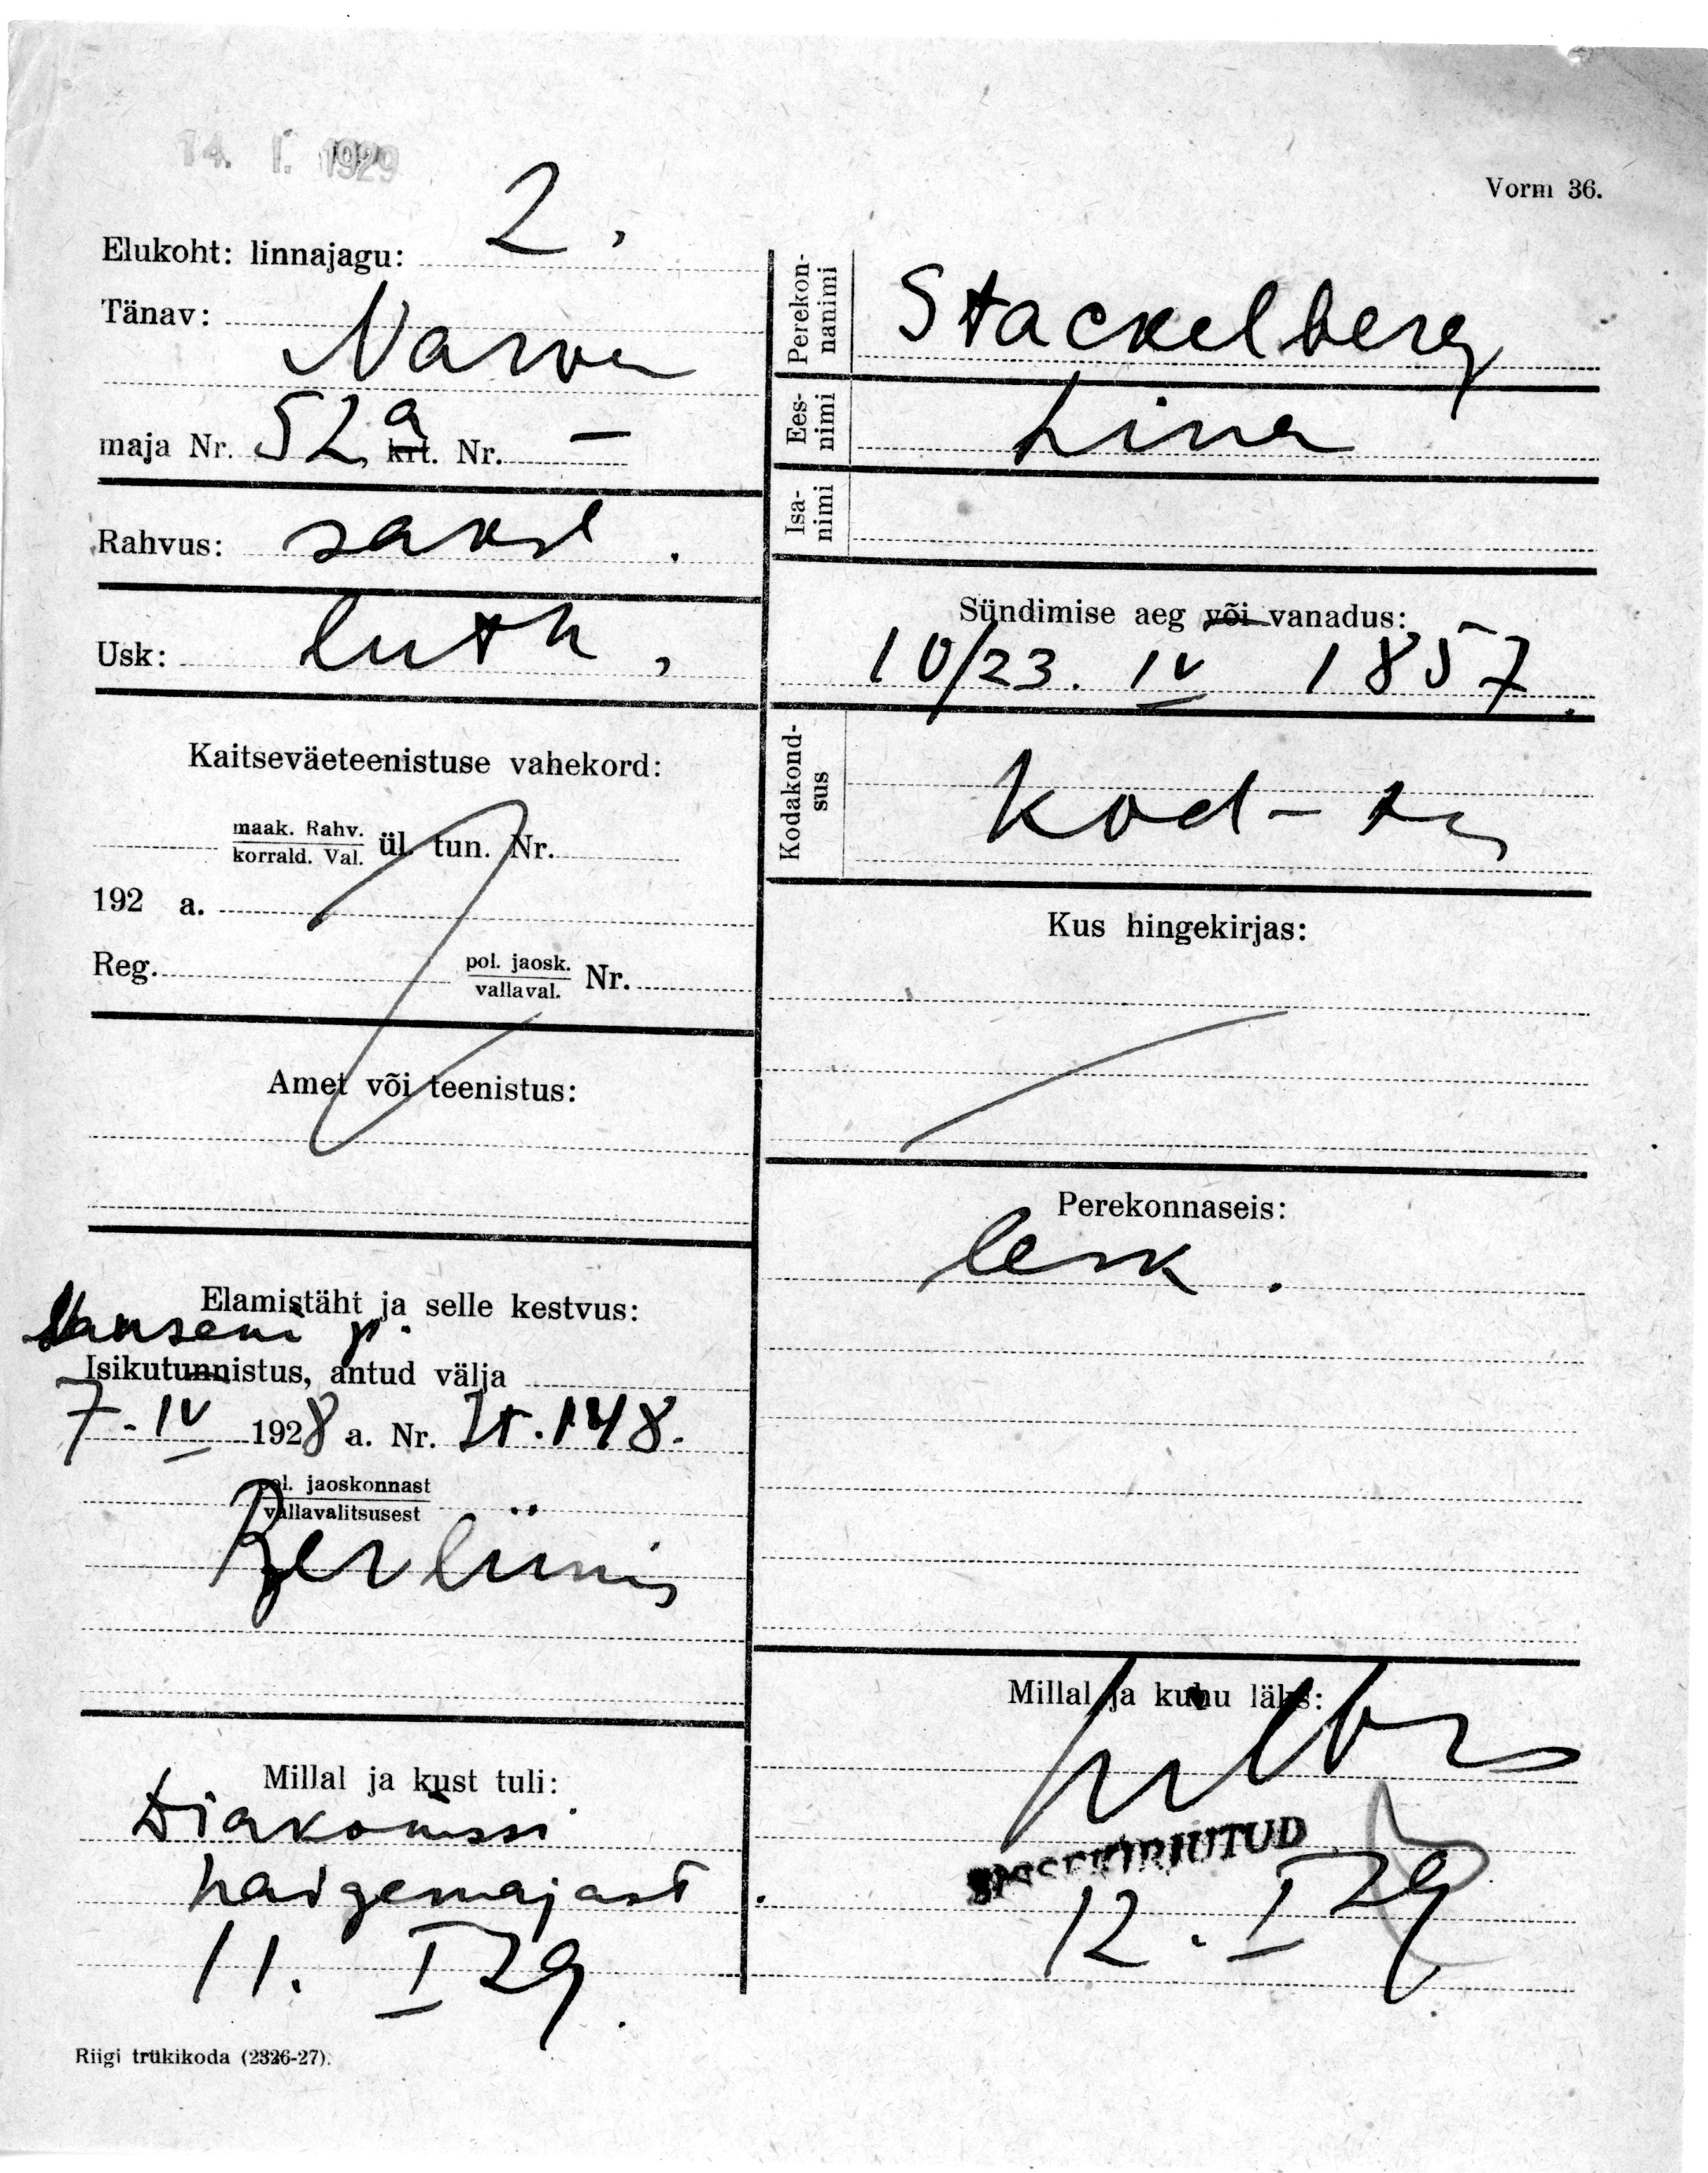 14. I. 1929
Vorm 36.
Elukoht: linnajagu: 2.
Tänav:
Narva
maja Nr. 52a krt. Nr. —
Rahvus: saksl.
Usk: luth.
Kaitseväeteenistuse vahekord:
maak. Rahv.
korrald. Val. ül. tun. Nr.
192 a.
Reg. pol. jaosk.
vallaval. Nr.
Amet või teenistus:
Elamistäht ja selle kestvus:
Nanseni p.
Isikutunnistus, antud välja
7.IV 1928 a. Nr. 148.
pol. jaoskonnast
vallavalitsusest
Berliinis
Millal ja kust tuli:
Diakonissi
haigemajast.
11. I 29.
Riigi trükikoda (2326-27).
Perekon-
nanimi
Stackelberg
Ees-
nimi
Lina
Isa-
nimi
Sündimise aeg või vanadus:
10/23. IV 1857.
Kodakond-
sus
Kod-ta
Kus hingekirjas:
Perekonnaseis:
lesk.
Millal ja kuhu läks:
SISSEKIRJUTUD
12. I 29